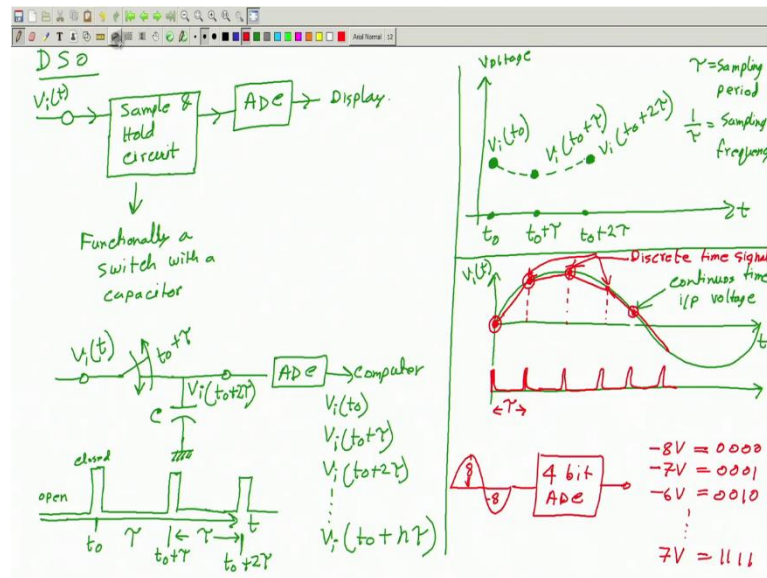 Arial Normal 12
DSO
Vi(t)
Sample &
Hold
circuit
ADC
Display.
Functionally a
switch with a
capacitor
Vi(t)
to+τ
Vi(to+2τ)
C
ADC
Computer
Vi(to)
Vi(to+τ)
Vi(to+2τ)
⋮
Vi(to+nτ)
closed
open
to
τ
to+τ
τ
to+2τ
t
Voltage
τ = Sampling
period
1/τ = Sampling
frequency
Vi(to)
Vi(to+τ)
Vi(to+2τ)
to
to+τ
to+2τ
t
Vi(t)
Discrete time signal
continuos time
i/p voltage
t
τ
8
-8
4 bit
ADC
-8V = 0000
-7V = 0001
-6V = 0010
⋮
7V = 1111